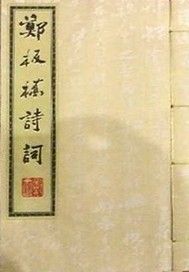 鄭板橋詩詞